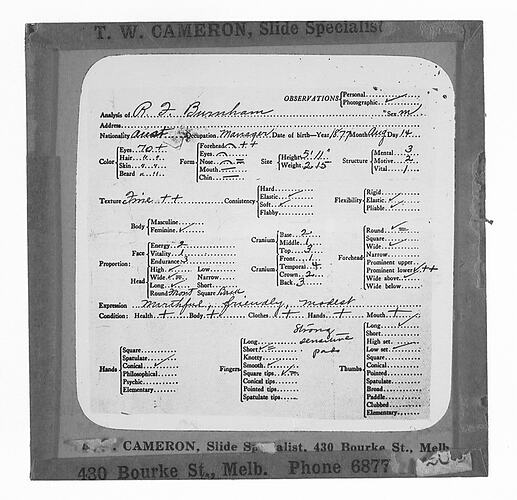 T. W. CAMERON, Slide Specialist
OBSERVATIONS Personal
Photographic ✓
Analysis of R F Burnham Sex m
Address
Nationality Aust Occupation Manager Date of birth—Year 1877 Month Aug Day 14
Color Eyes 70+
Hair " "
Skin " "
Beard " "
Form Forehead
Eyes
Nose
Mouth
Chin
Size Height 5' 11"
Weight 215
Structure Mental 3
Motive 2
Vital 1
Texture Fine ++ Consistency Hard
Elastic
Soft
Flabby
Flexibility Rigid
Elastic
Pliable
Body Masculine
Feminine ✓
Proportion: Face Energy 2
Vitality 1
Endurance 3
Head High ✓ Low
Wide Narrow
Long ✓ Short
Round Square
Cranium Base 2
Middle 1
Top 3
Cranium Front 1
Temporal 4
Crown 2
Back 3
Forehead Round
Square
Wide
Narrow
Prominent upper
Prominent lower ++
Wide above
Wide below
Expression Mirthful, friendly, modest
Condition: Health + Body + Clothes + Hands + Mouth +
strong sensitive pads
Hands Square
Spatulate
Conical
Philosophical
Psychic
Elementary
Fingers Long
Short
Knotty
Smooth
Square tips
Conical tips
Pointed tips
Spatulate tips
Thumbs Long
Short
High set
Low set
Square
Conical
Pointed
Spatulate
Broad
Paddle
Clubbed
Elementary
CAMERON, Slide Specialist, 430 Bourke St., Melb
430 Bourke St., Melb. Phone 6877